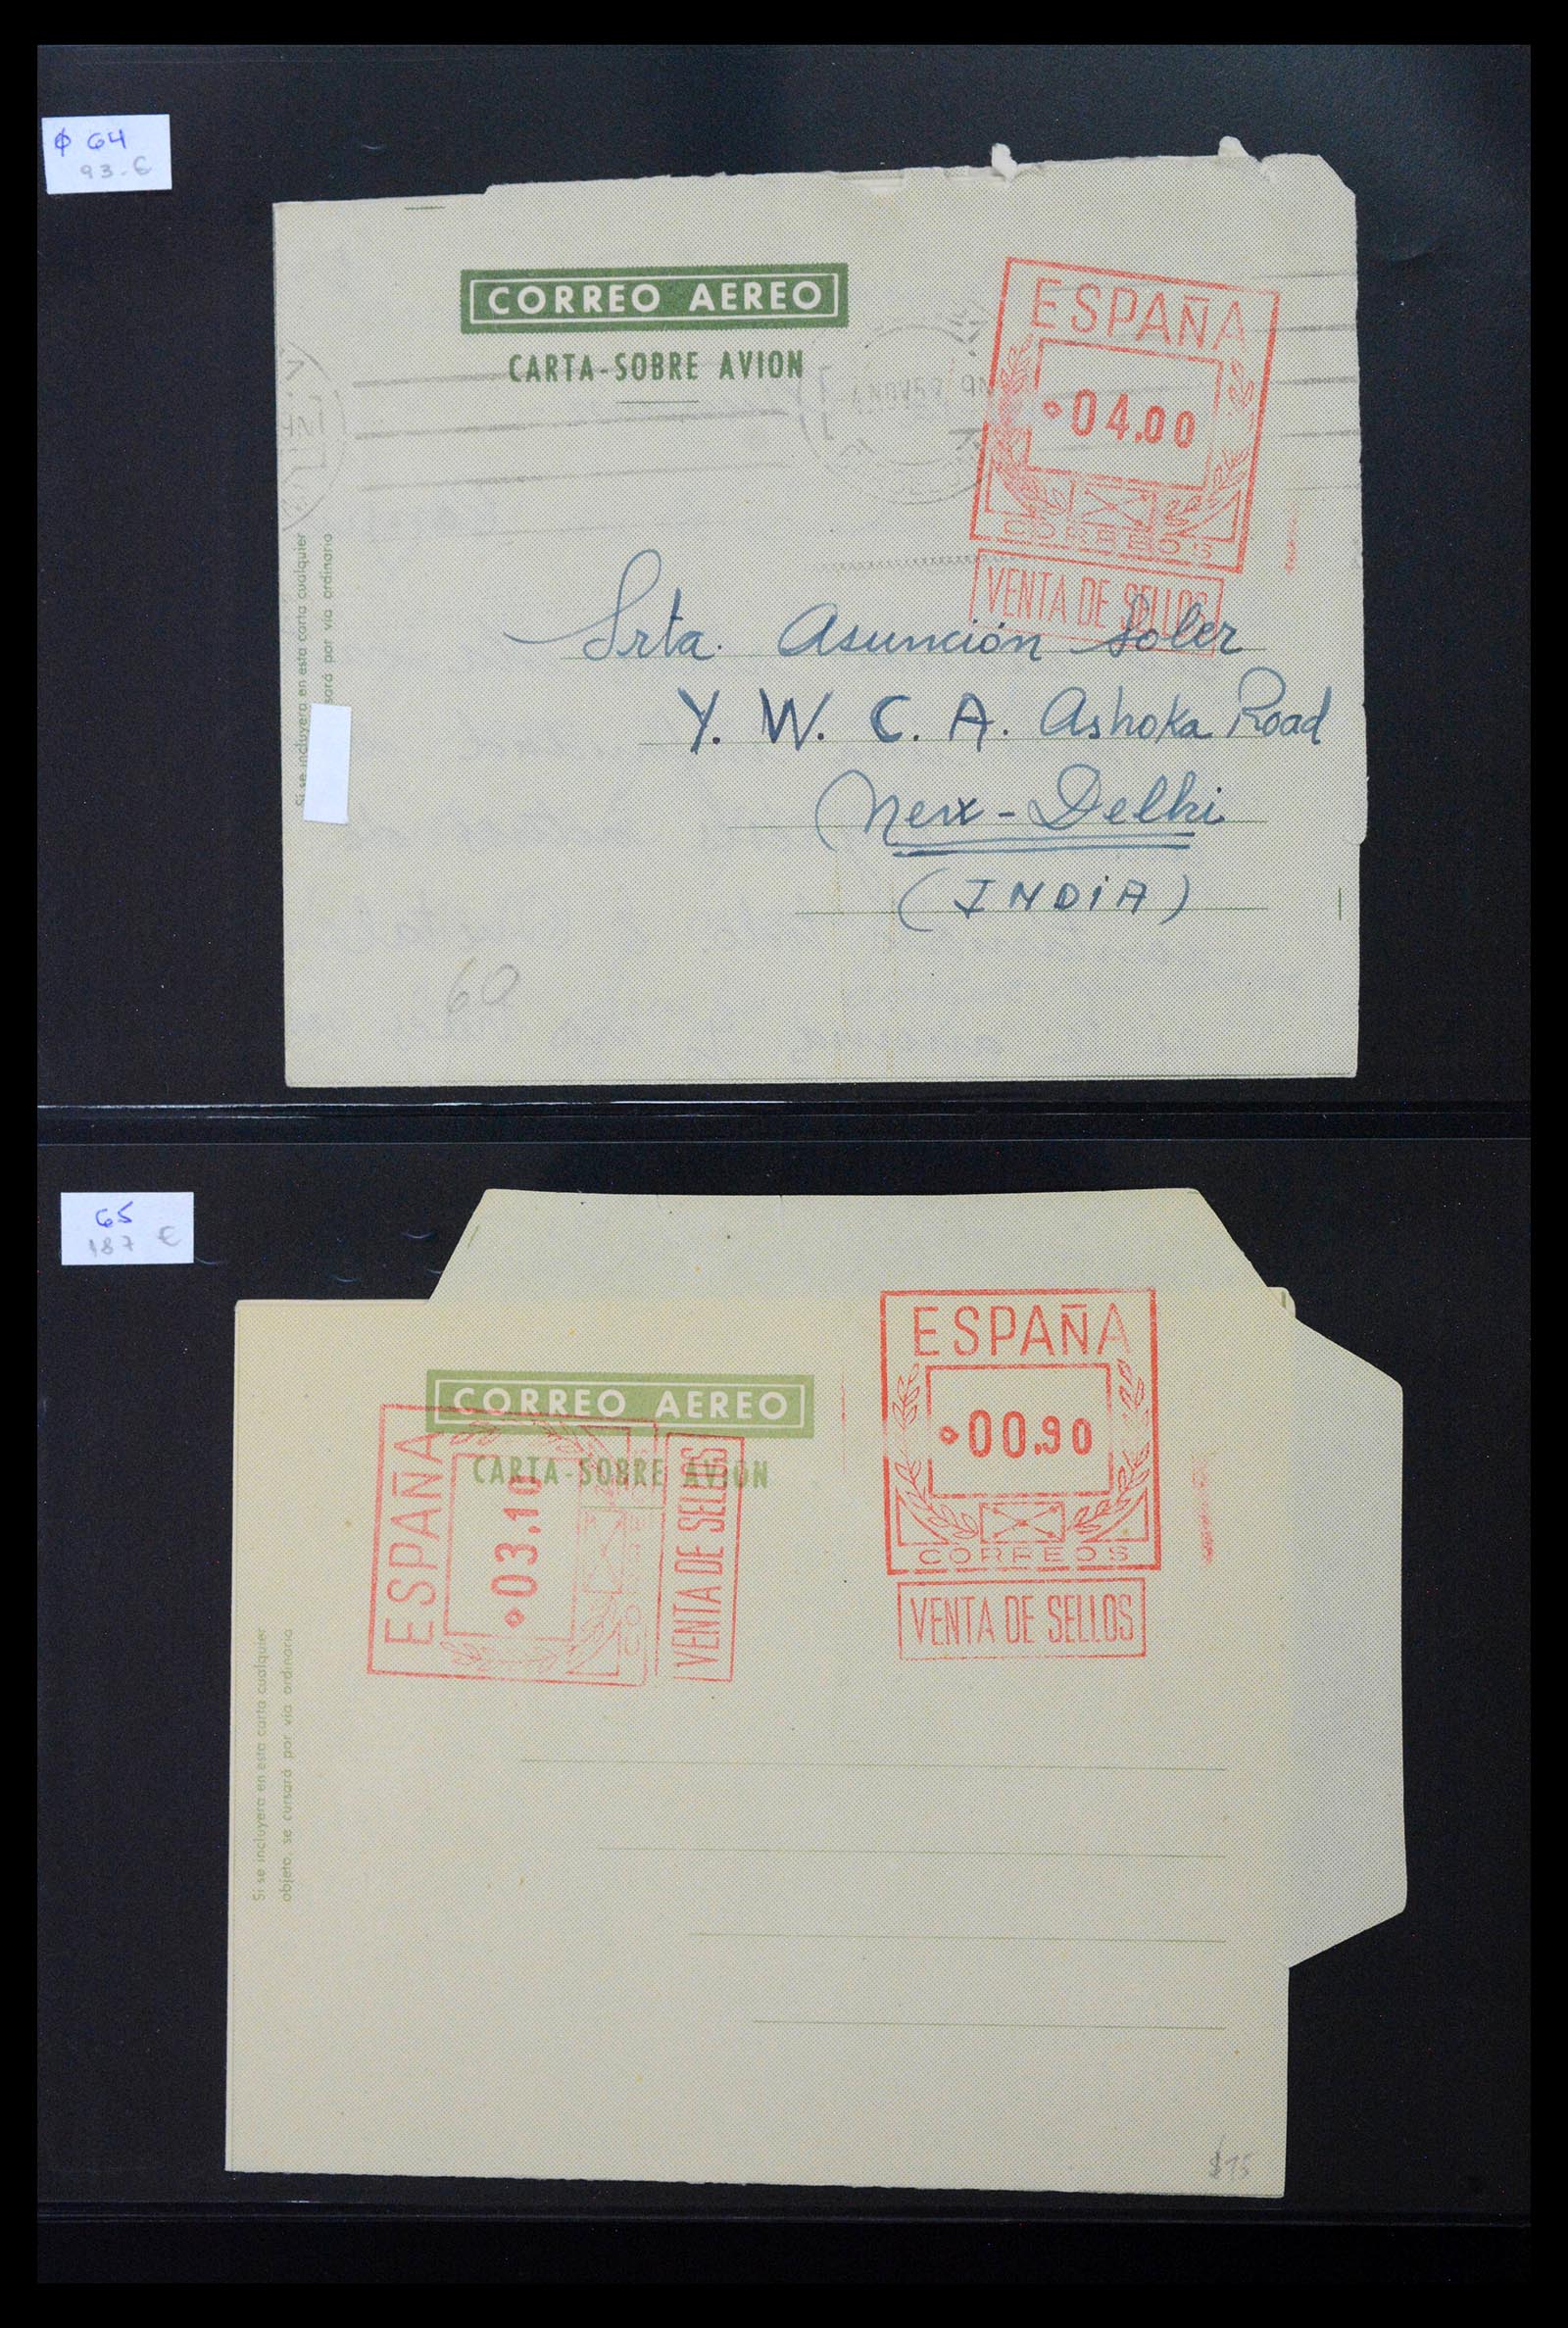 ¢ 64
93.-€
CORREO AEREO
CARTA-SOBRE AVION
ESPAÑA
04.00
CORREOS
VENTA DE SELLOS
Si se incluyera en esta carta cualquier
sará por vía ordinaria
Srta. Asunción Soler
Y. W. C. A. Ashoka Road
New-Delhi
(INDIA)
60
65
187 €
CORREO AEREO
CARTA-SOBRE AVION
ESPAÑA
03.10
CORREOS
VENTA DE SELLOS
ESPAÑA
00.90
CORREOS
VENTA DE SELLOS
Si se incluyera en esta carta cualquier
objeto, se cursará por vía ordinaria
$15